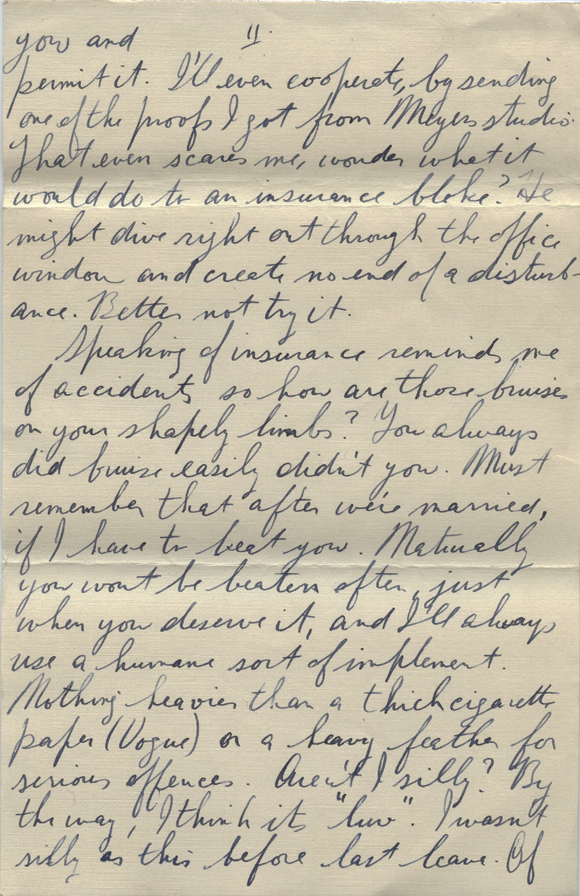 you and 11.
permit it. I'll even cooperate, by sending
one of the proofs I got from Meyers studio.
That even scares me, wonder what it
would do to an insurance bloke? He
might dive right out through the office
window and create no end of a disturb-
ance. Better not try it.
Speaking of insurance reminds me
of accidents so how are those bruises
on your shapely limbs? You always
did bruise easily didn't you. Must
remember that after we're married,
if I have to beat you. Naturally
you wont be beaten often, just
when you deserve it, and I'll always
use a humane sort of implement.
Nothing heavier than a thick cigarette
paper (Vogue) or a heavy feather for
serious offences. Aren't I silly? By
the way, I think its "luv". I wasn't
silly as this before last leave. Of